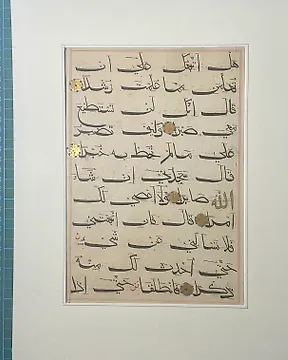 هل اتبعك على ان
تعلمن مما علمت رشدا
قال انك لن تستطيع
معي صبرا وكيف تصبر
على ما لم تحط به خبرا
قال ستجدني ان شا
الله صابرا ولا اعصي لك
امرا قال فان اتبعتني
فلا تسالني عن شيء
حتى احدث لك منه
ذكرا فانطلقا حتى اذا